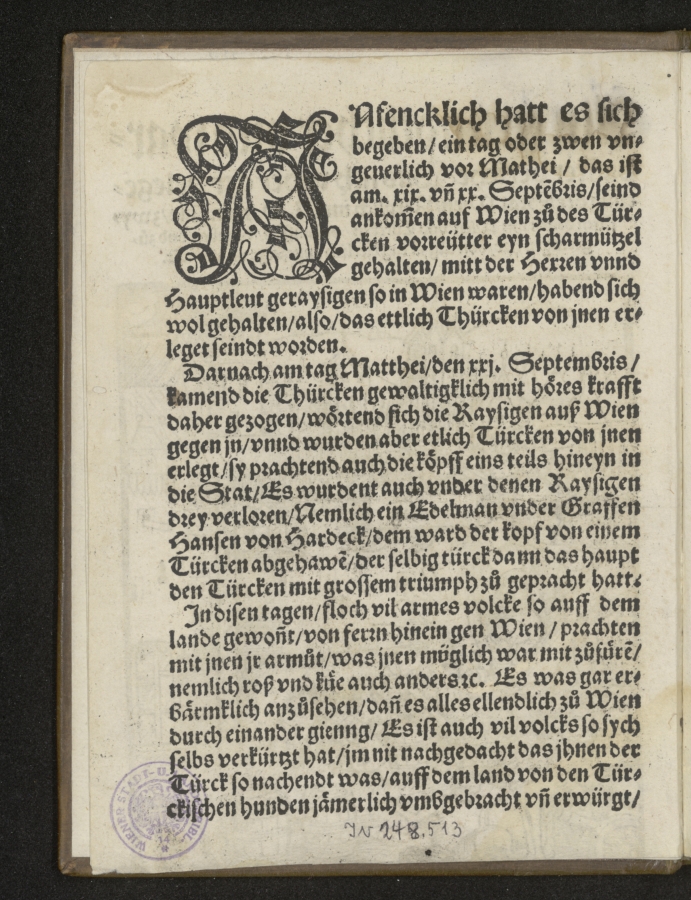 ANfencklich hatt es sich
begeben/ein tag oder zwen vn⸗
geuerlich vor Mathei / das ist
am. xix. vñ xx. Septẽbris/seind
ankom̃en auf Wien zů des Tür⸗
cken vorreütter eyn scharmützel
gehalten/ mitt der Herren vnnd
Hauptleut geraysigen so in Wien waren/habend sich
wol gehalten/also/das ettlich Thürcken von jnen er⸗
leget seindt worden.
Darnach am tag Matthei/den xxj. Septembris /
kamend die Thürcken gewaltigklich mit höres krafft
daher gezogen/wörtend sich die Raysigen auß Wien
gegen jn/vnnd wurden aber etlich Türcken von jnen
erlegt/sy prachtend auch die köpff eins teils hineyn in
die Stat/Es wurdent auch vnder denen Raysigen
drey verloren/Nemlich ein Edelman vnder Graffen
Hansen von Hardeck/dem ward der kopf von einem
Türcken abgehawẽ/der selbig türck dann das haupt
den Türcken mit grossem triumph zů gepracht hatt.
In disen tagen/floch vil armes volcke so auff dem
lande gewoñt/von ferrn hinein gen Wien / prachten
mit jnen jr armůt/was jnen müglich war mit zůfürẽ/
nemlich roß vnd küe auch anders ꝛc. Es was gar er⸗
bärmklich anzůsehen/dañ es alles ellendlich zů Wien
durch einander gienng/ Es ist auch vil volcks so sych
selbs verkürtzt hat/jm nit nachgedacht das jhnen der
Türck so nachendt was/auff dem land von den Tür⸗
ckischen hunden jämerlich vmbgebracht vñ erwürgt/
JN 248.513
WIENER STADT-